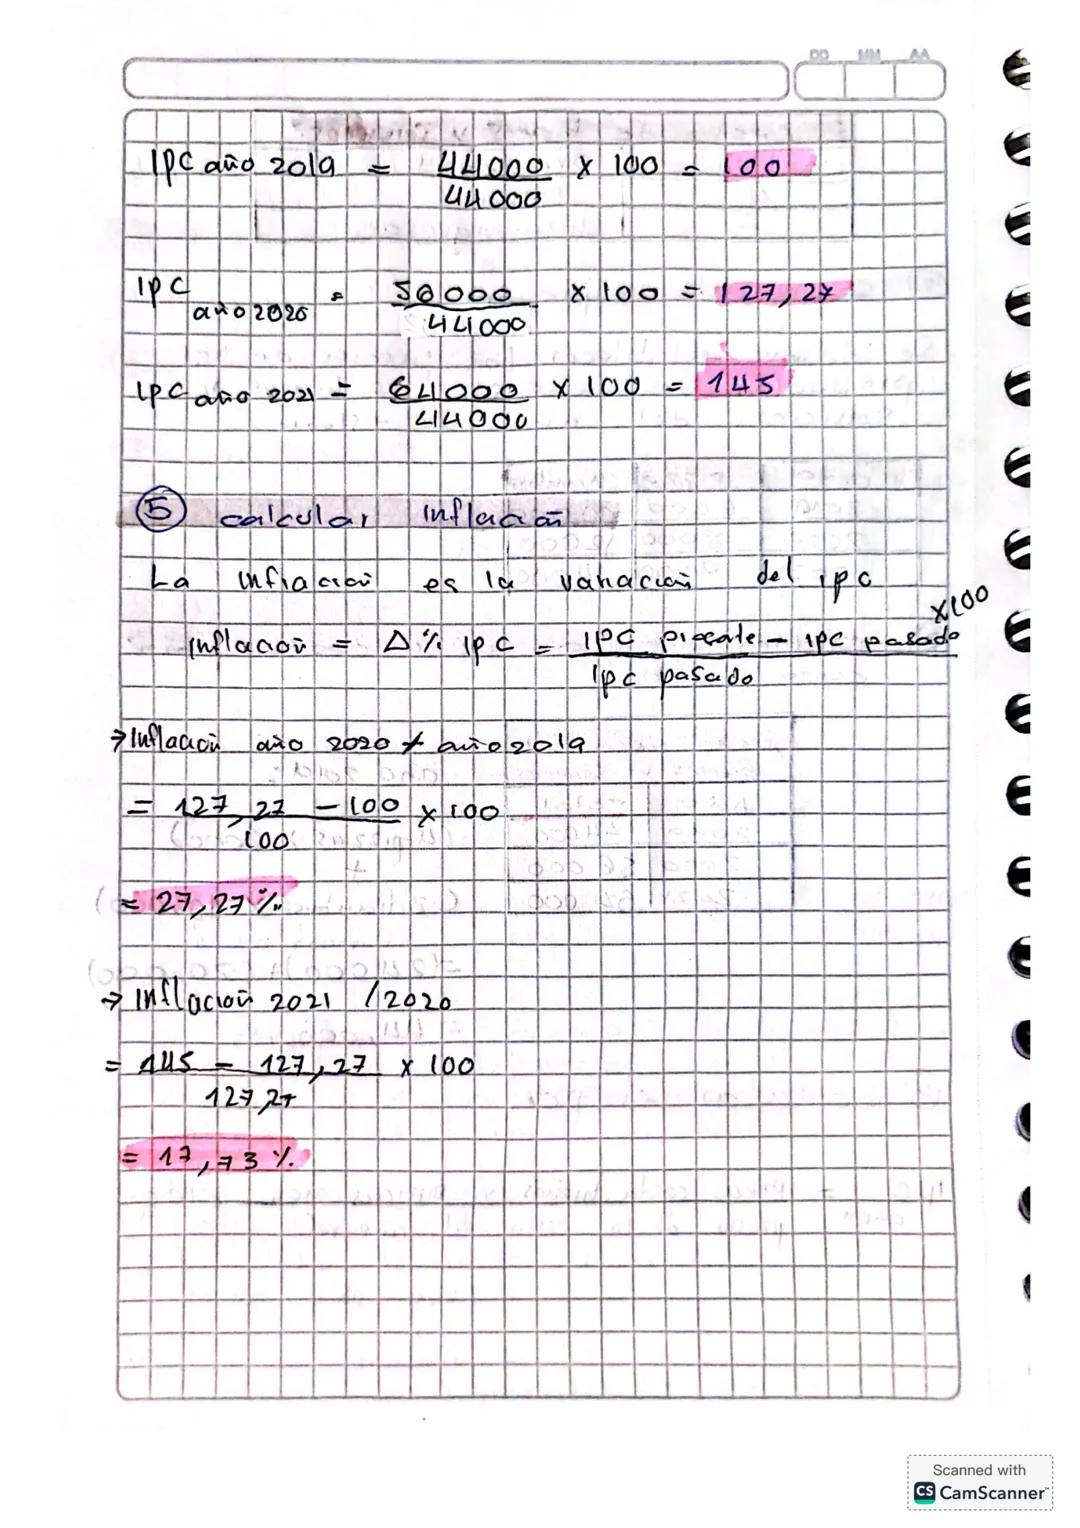 DD MM AA
IPC año 2019 = 44000 x 100 = 100
44000
IPC año 2020 = 56000 x 100 = 127,27
44000
IPC año 2021 = 64000 x 100 = 145
44000
5 calcular inflación
La inflación es la variación del ipc
x100
Inflación = Δ % ipc = IPC presente - ipc pasado
ipc pasado
→ Inflación año 2020 / año 2019
= 127,27 - 100 x 100
100
= 27,27 %
→ Inflación 2021 / 2020
= 145 - 127,27 x 100
127,27
= 17,73 %
Scanned with
CS CamScanner